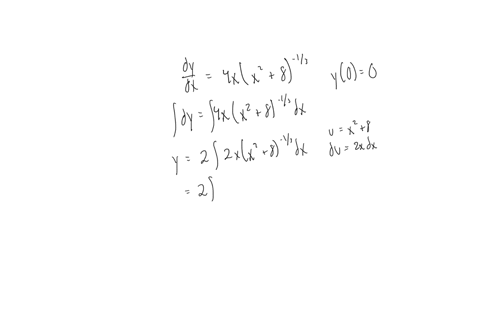 dy/dx = 4x(x² + 8)^(-1/3)   y(0) = 0
∫ dy = ∫ 4x(x² + 8)^(-1/3) dx
y = 2 ∫ 2x(x² + 8)^(-1/3) dx   u = x² + 8
du = 2x dx
= 2 ∫